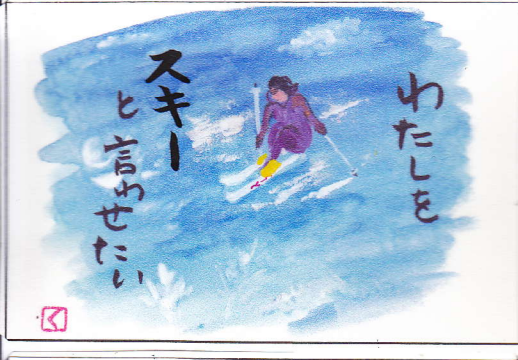 わたしを
スキー
と言わせたい
く